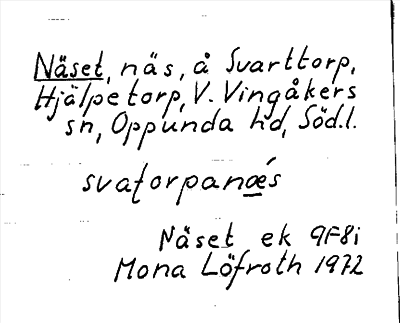 Näset, näs, å Svarttorp,
Hjälpetorp, V. Vingåkers
sn, Oppunda hd, Söd.l.
svatorpanǽs
Näset ek 9F8i
Mona Löfroth 1972